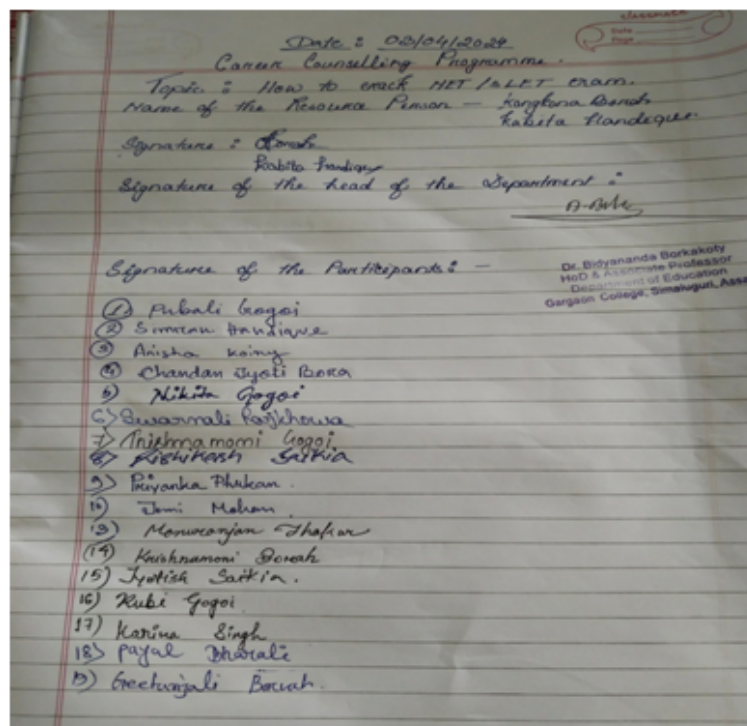 classmate
Date
Page
Date : 03/04/2024
Career Counselling Programme.
Topic : How to crack NET/SLET exam.
Name of the Resource Person — Kongkona Borah
Kabita Handique
Signature : Borah
Kabita Handique
Signature of the head of the Department :
Signature of the Participants : —
Dr. Bidyananda Borkakoty
HoD & Associate Professor
Department of Education
Gargaon College, Simaluguri, Assa
① Pubali Gogoi
② Simran Handique
③ Anisha
④ Chandan Jyoti Bora
5) Nikita Gogoi
6) Swarnali Rajkhowa
7) Trishnamoni Gogoi
8) Rishikesh Saikia
9) Priyanka Phukan.
10) Jomi Mohan.
13) Manuranjan Thakur
(14) Krishnamoni Borah
15) Jyotish Saikia.
16) Rubi Gogoi
17) Karina Singh
18) Payal Bharali
19) Geetanjali Boruah.